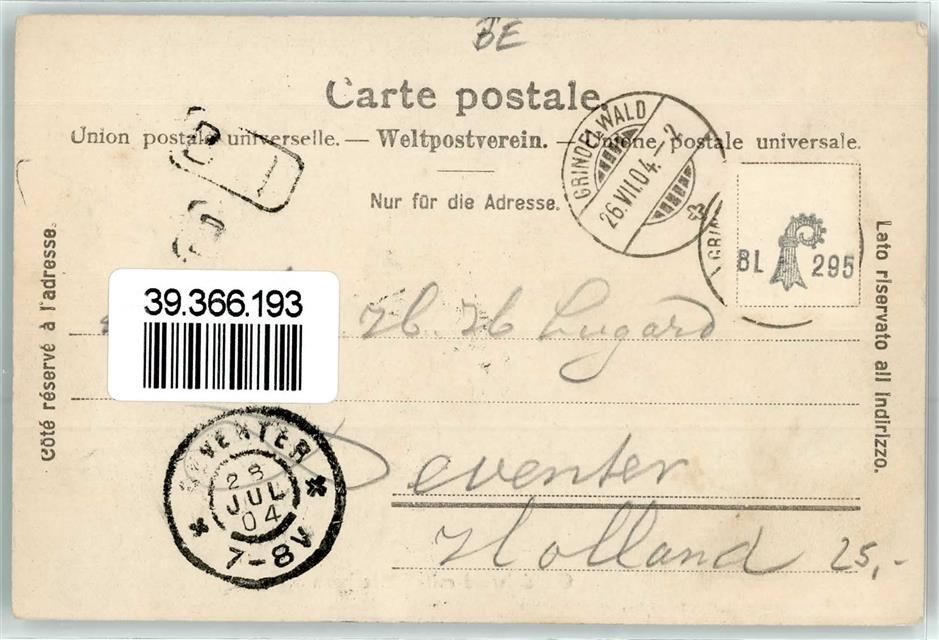 BE
Carte postale.
Union postale universelle. — Weltpostverein. — Unione postale universale.
Nur für die Adresse.
GRINDELWALD
26.VII.04.–2
GRIN
BL 295
Côté réservé à l'adresse.
Lato riservato all indirizzo.
39.366.193
H. H Lugard
Deventer
Holland 25,-
DEVENTER
28
JUL
04
7-8V